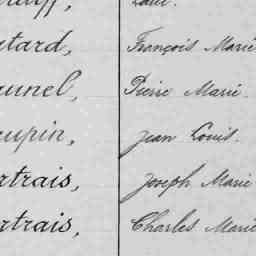 tard, François Marie
unel, Pierre Marie.
upin, Jean Louis.
rtrais, Joseph Marie
rtrais, Charles Marie